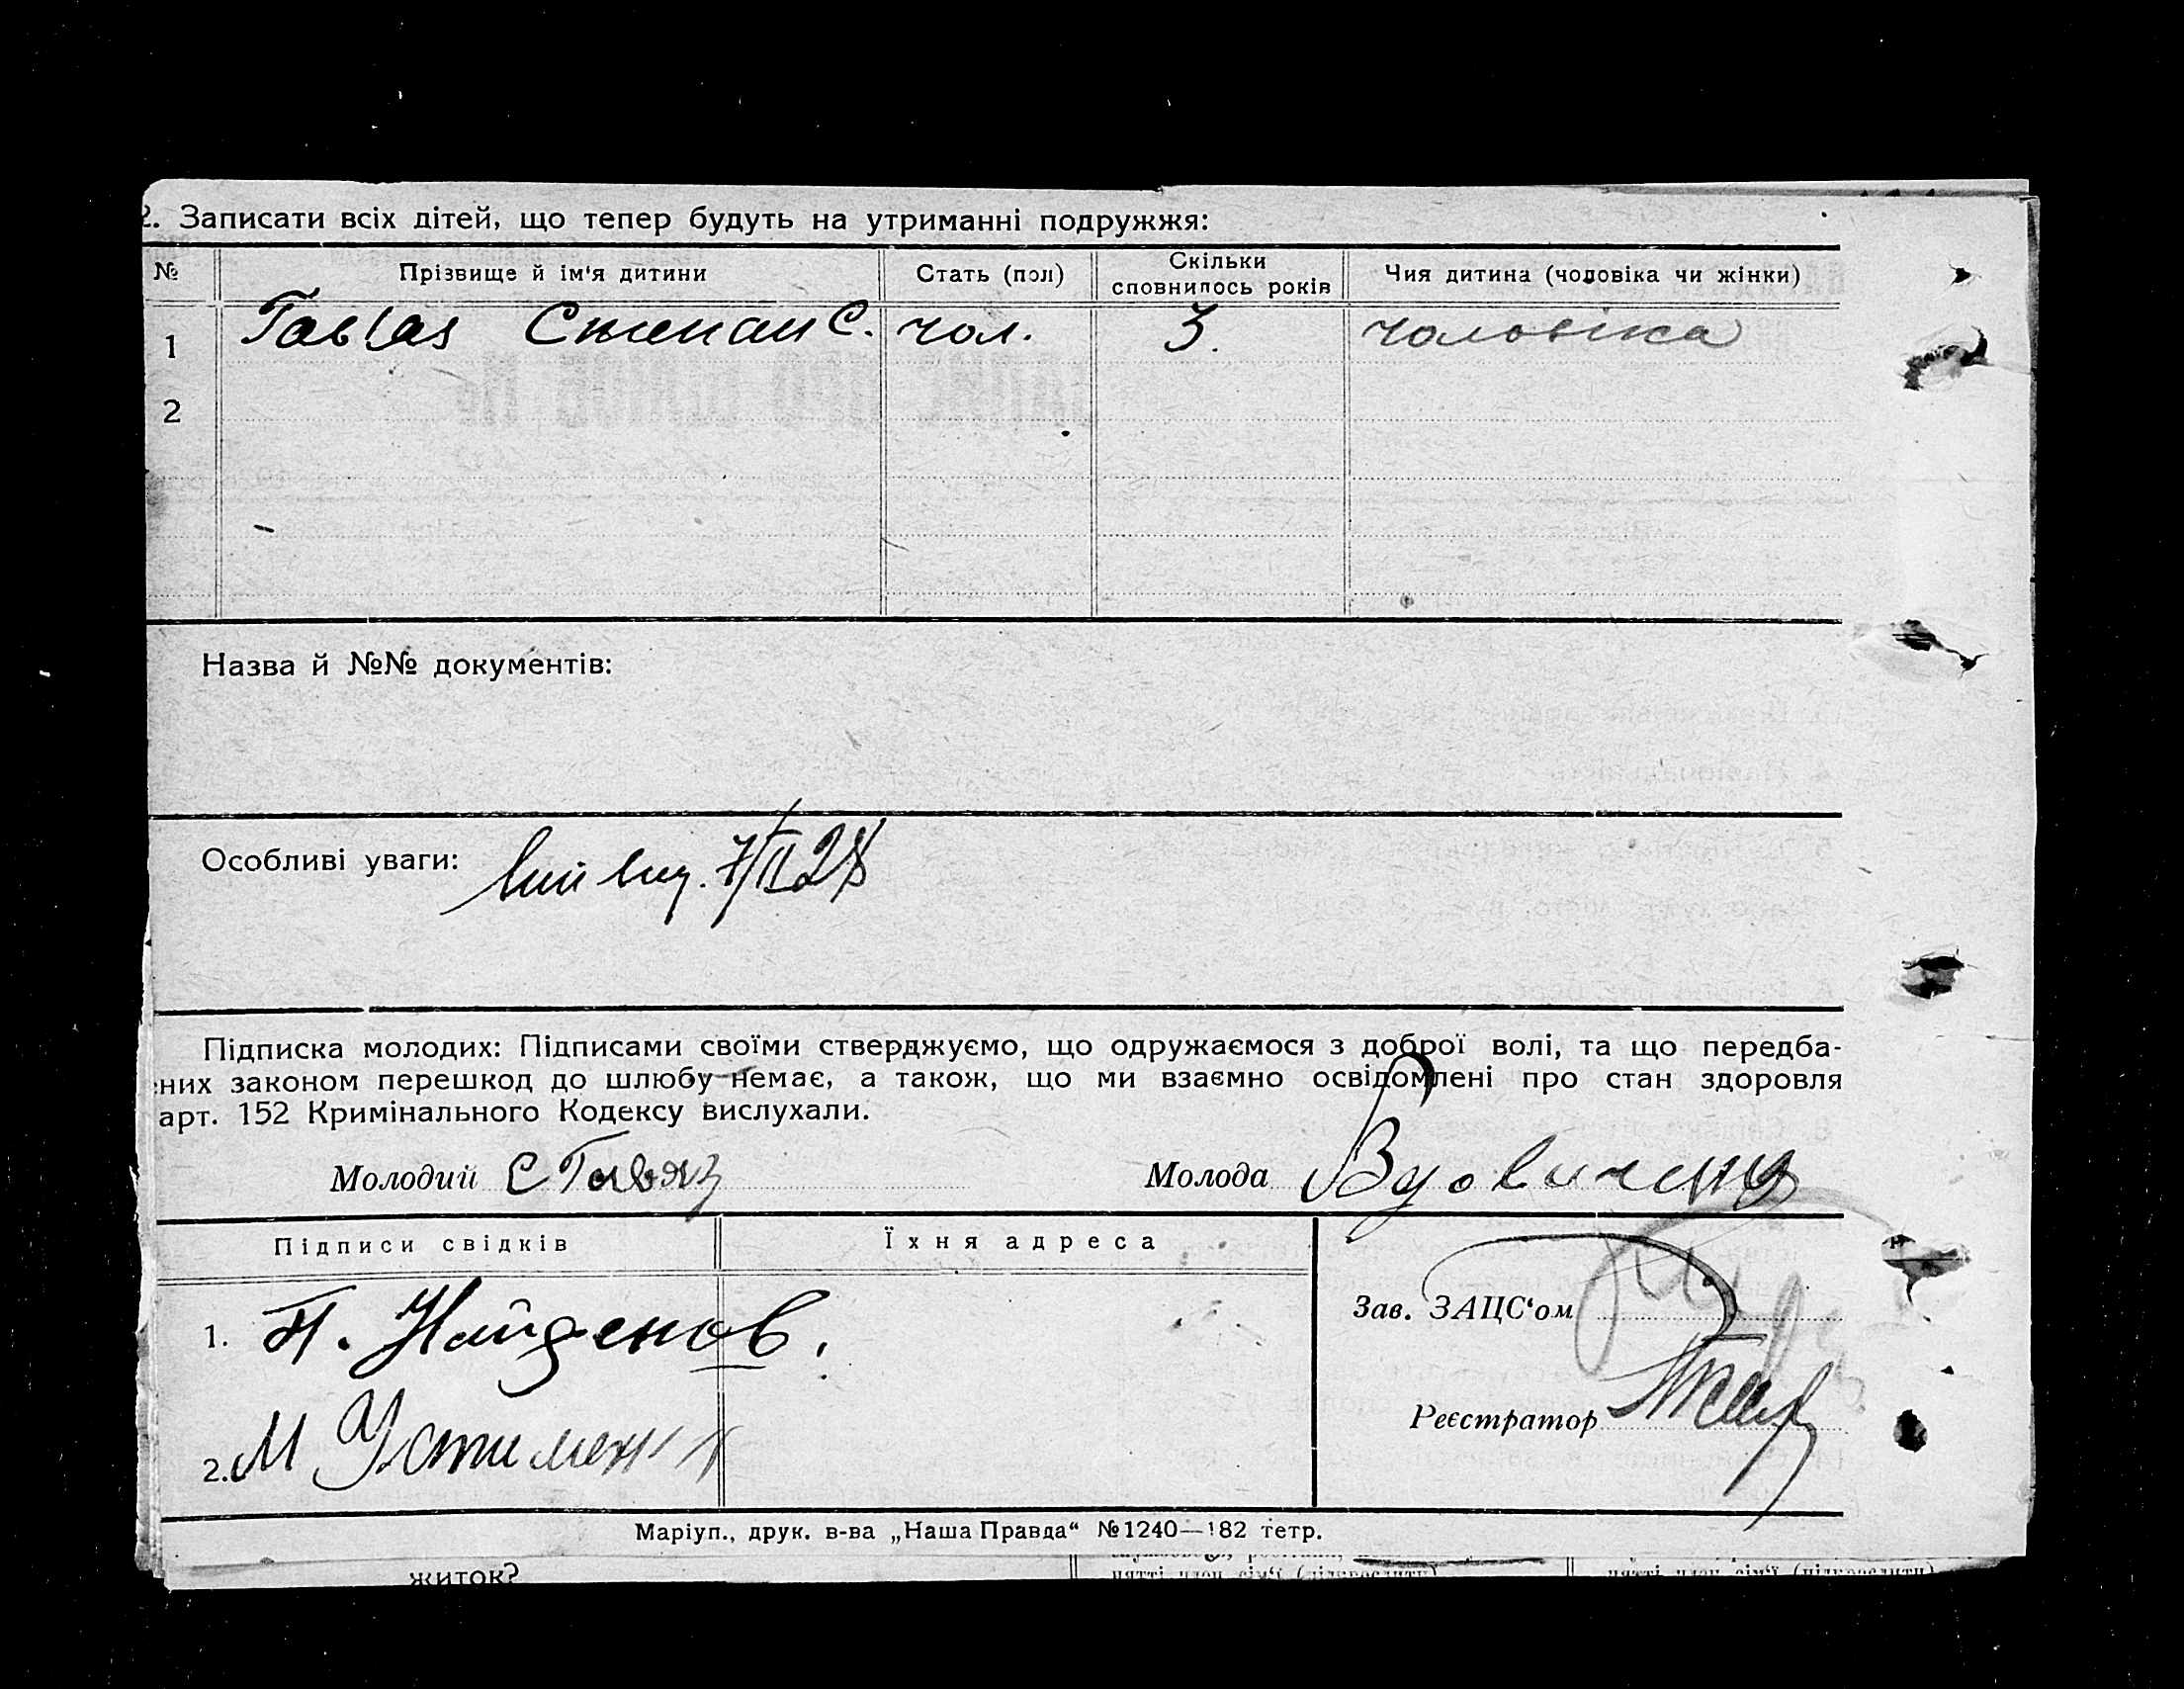 2. Записати всіх дітей, що тепер будуть на утриманні подружжя:
№ Прізвище й ім'я дитини Стать (пол) Скільки сповнилось років Чия дитина (чоловіка чи жінки)
1 Степан С. чол. 3. чоловіка
2
Назва й №№ документів:
Особливі уваги: 7/II 28
Підписка молодих: Підписами своїми стверджуємо, що одружаємося з доброї волі, та що передба-
них законом перешкод до шлюбу немає, а також, що ми взаємно освідомлені про стан здоровля
арт. 152 Кримінального Кодексу вислухали.
Молодий С Молода
Підписи свідків Їхня адреса
1. П. Найденов.
Зав. ЗАЦС'ом
Реєстратор
2. М Устименк
Маріуп., друк. в-ва „Наша Правда“ №1240—182 тетр.
житок?